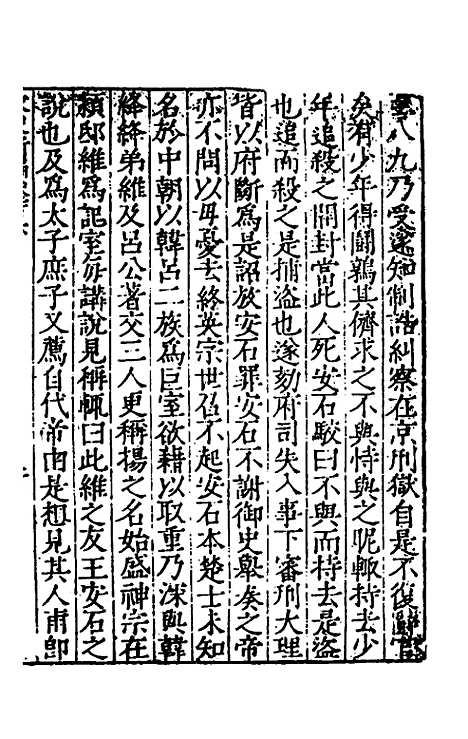 八九乃受遂知制誥糾察在京刑獄自是不復辭官
矣有少年得鬪鶉其儕求之不與恃與之昵輒持去少
年追殺之開封當此人死安石駁曰不與而持去是盗
也追而殺之是捕盗也遂劾府司失入事下審刑大理
皆以府斷爲是詔放安石罪安石不謝御史舉奏之帝
亦不問以母憂去終英宗世召不起安石本楚士未知
名於中朝以韓呂二族爲巨室欲藉以取重乃深與韓
絳絳弟維及呂公著交三人更稱揚之名始盛神宗在
潁邸維爲記室每講說見稱輒曰此維之友王安石之
說也及爲太子庶子又薦自代帝由是想見其人甫即